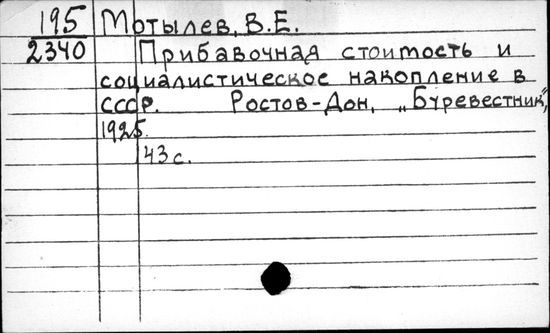 195 Мотылев, В.Е.
2340 Прибавочная стоимость и
социалистическое накопление в
СССР. Ростов-Дон, „Буревестник",
1925.
43 с.